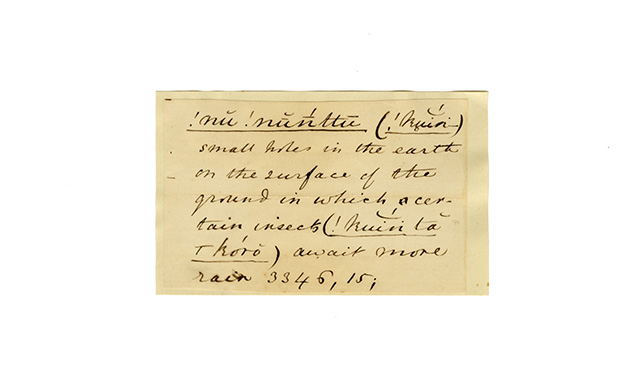 !nŭ !nŭńttŭ (!kŭïśi)
small holes in the earth
on the surface of the
ground in which a cer-
tain insect (!kuïń tā
T kórŏ) await more
rain 3346, 15;